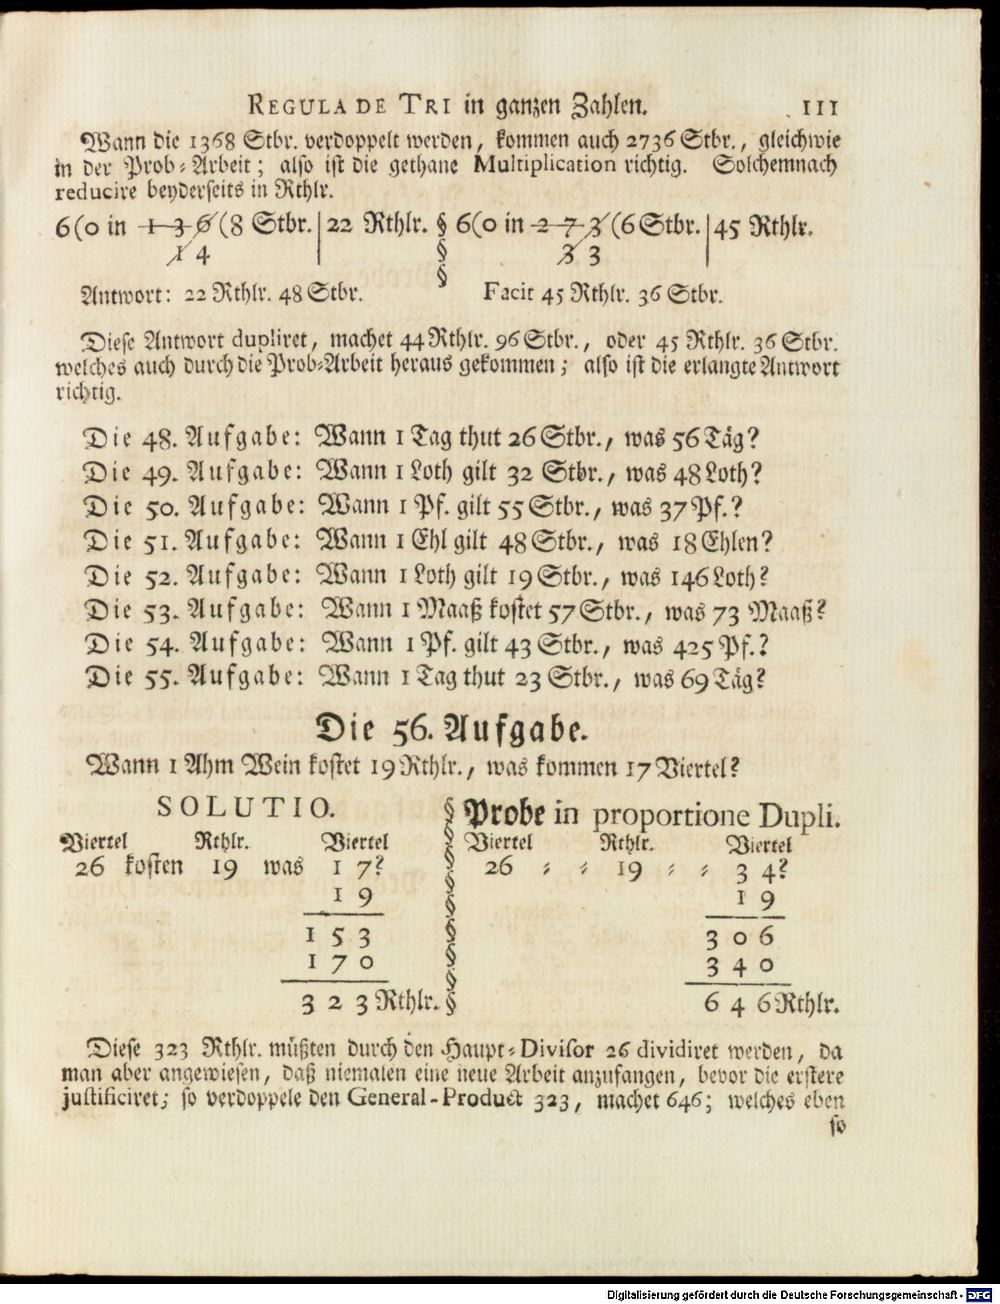 REGULA DE TRI in ganzen Zahlen. 111
Wann die 1368 Stbr. verdoppelt werden, kommen auch 2736 Stbr., gleichwie
in der Prob-Arbeit; also ist die gethane Multiplication richtig. Solchemnach
reducire beyderseits in Rthlr.
6(0 in 1 3 6 (8 Stbr. | 22 Rthlr. § 6(0 in 2 7 3 (6 Stbr. | 45 Rthlr.
1 4 § 3 3
§
Antwort: 22 Rthlr. 48 Stbr. Facit 45 Rthlr. 36 Stbr.
Diese Antwort dupliret, machet 44 Rthlr. 96 Stbr., oder 45 Rthlr. 36 Stbr.
welches auch durch die Prob-Arbeit heraus gekommen; also ist die erlangte Antwort
richtig.
Die 48. Aufgabe: Wann 1 Tag thut 26 Stbr., was 56 Täg?
Die 49. Aufgabe: Wann 1 Loth gilt 32 Stbr., was 48 Loth?
Die 50. Aufgabe: Wann 1 Pf. gilt 55 Stbr., was 37 Pf.?
Die 51. Aufgabe: Wann 1 Ehl gilt 48 Stbr., was 18 Ehlen?
Die 52. Aufgabe: Wann 1 Loth gilt 19 Stbr., was 146 Loth?
Die 53. Aufgabe: Wann 1 Maaß kostet 57 Stbr., was 73 Maaß?
Die 54. Aufgabe: Wann 1 Pf. gilt 43 Stbr., was 425 Pf.?
Die 55. Aufgabe: Wann 1 Tag thut 23 Stbr., was 69 Täg?
Die 56. Aufgabe.
Wann 1 Ahm Wein kostet 19 Rthlr., was kommen 17 Viertel?
SOLUTIO. § Probe in proportione Dupli.
Viertel Rthlr. Viertel § Viertel Rthlr. Viertel
26 kosten 19 was 1 7? § 26 - - 19 - - 3 4?
1 9 § 1 9
1 5 3 § 3 0 6
1 7 0 § 3 4 0
3 2 3 Rthlr. § 6 4 6 Rthlr.
Diese 323 Rthlr. müßten durch den Haupt-Divisor 26 dividiret werden, da
man aber angewiesen, daß niemalen eine neue Arbeit anzufangen, bevor die erstere
justificiret; so verdoppele den General-Product 323, machet 646; welches eben
so
Digitalisierung gefördert durch die Deutsche Forschungsgemeinschaft - DFG